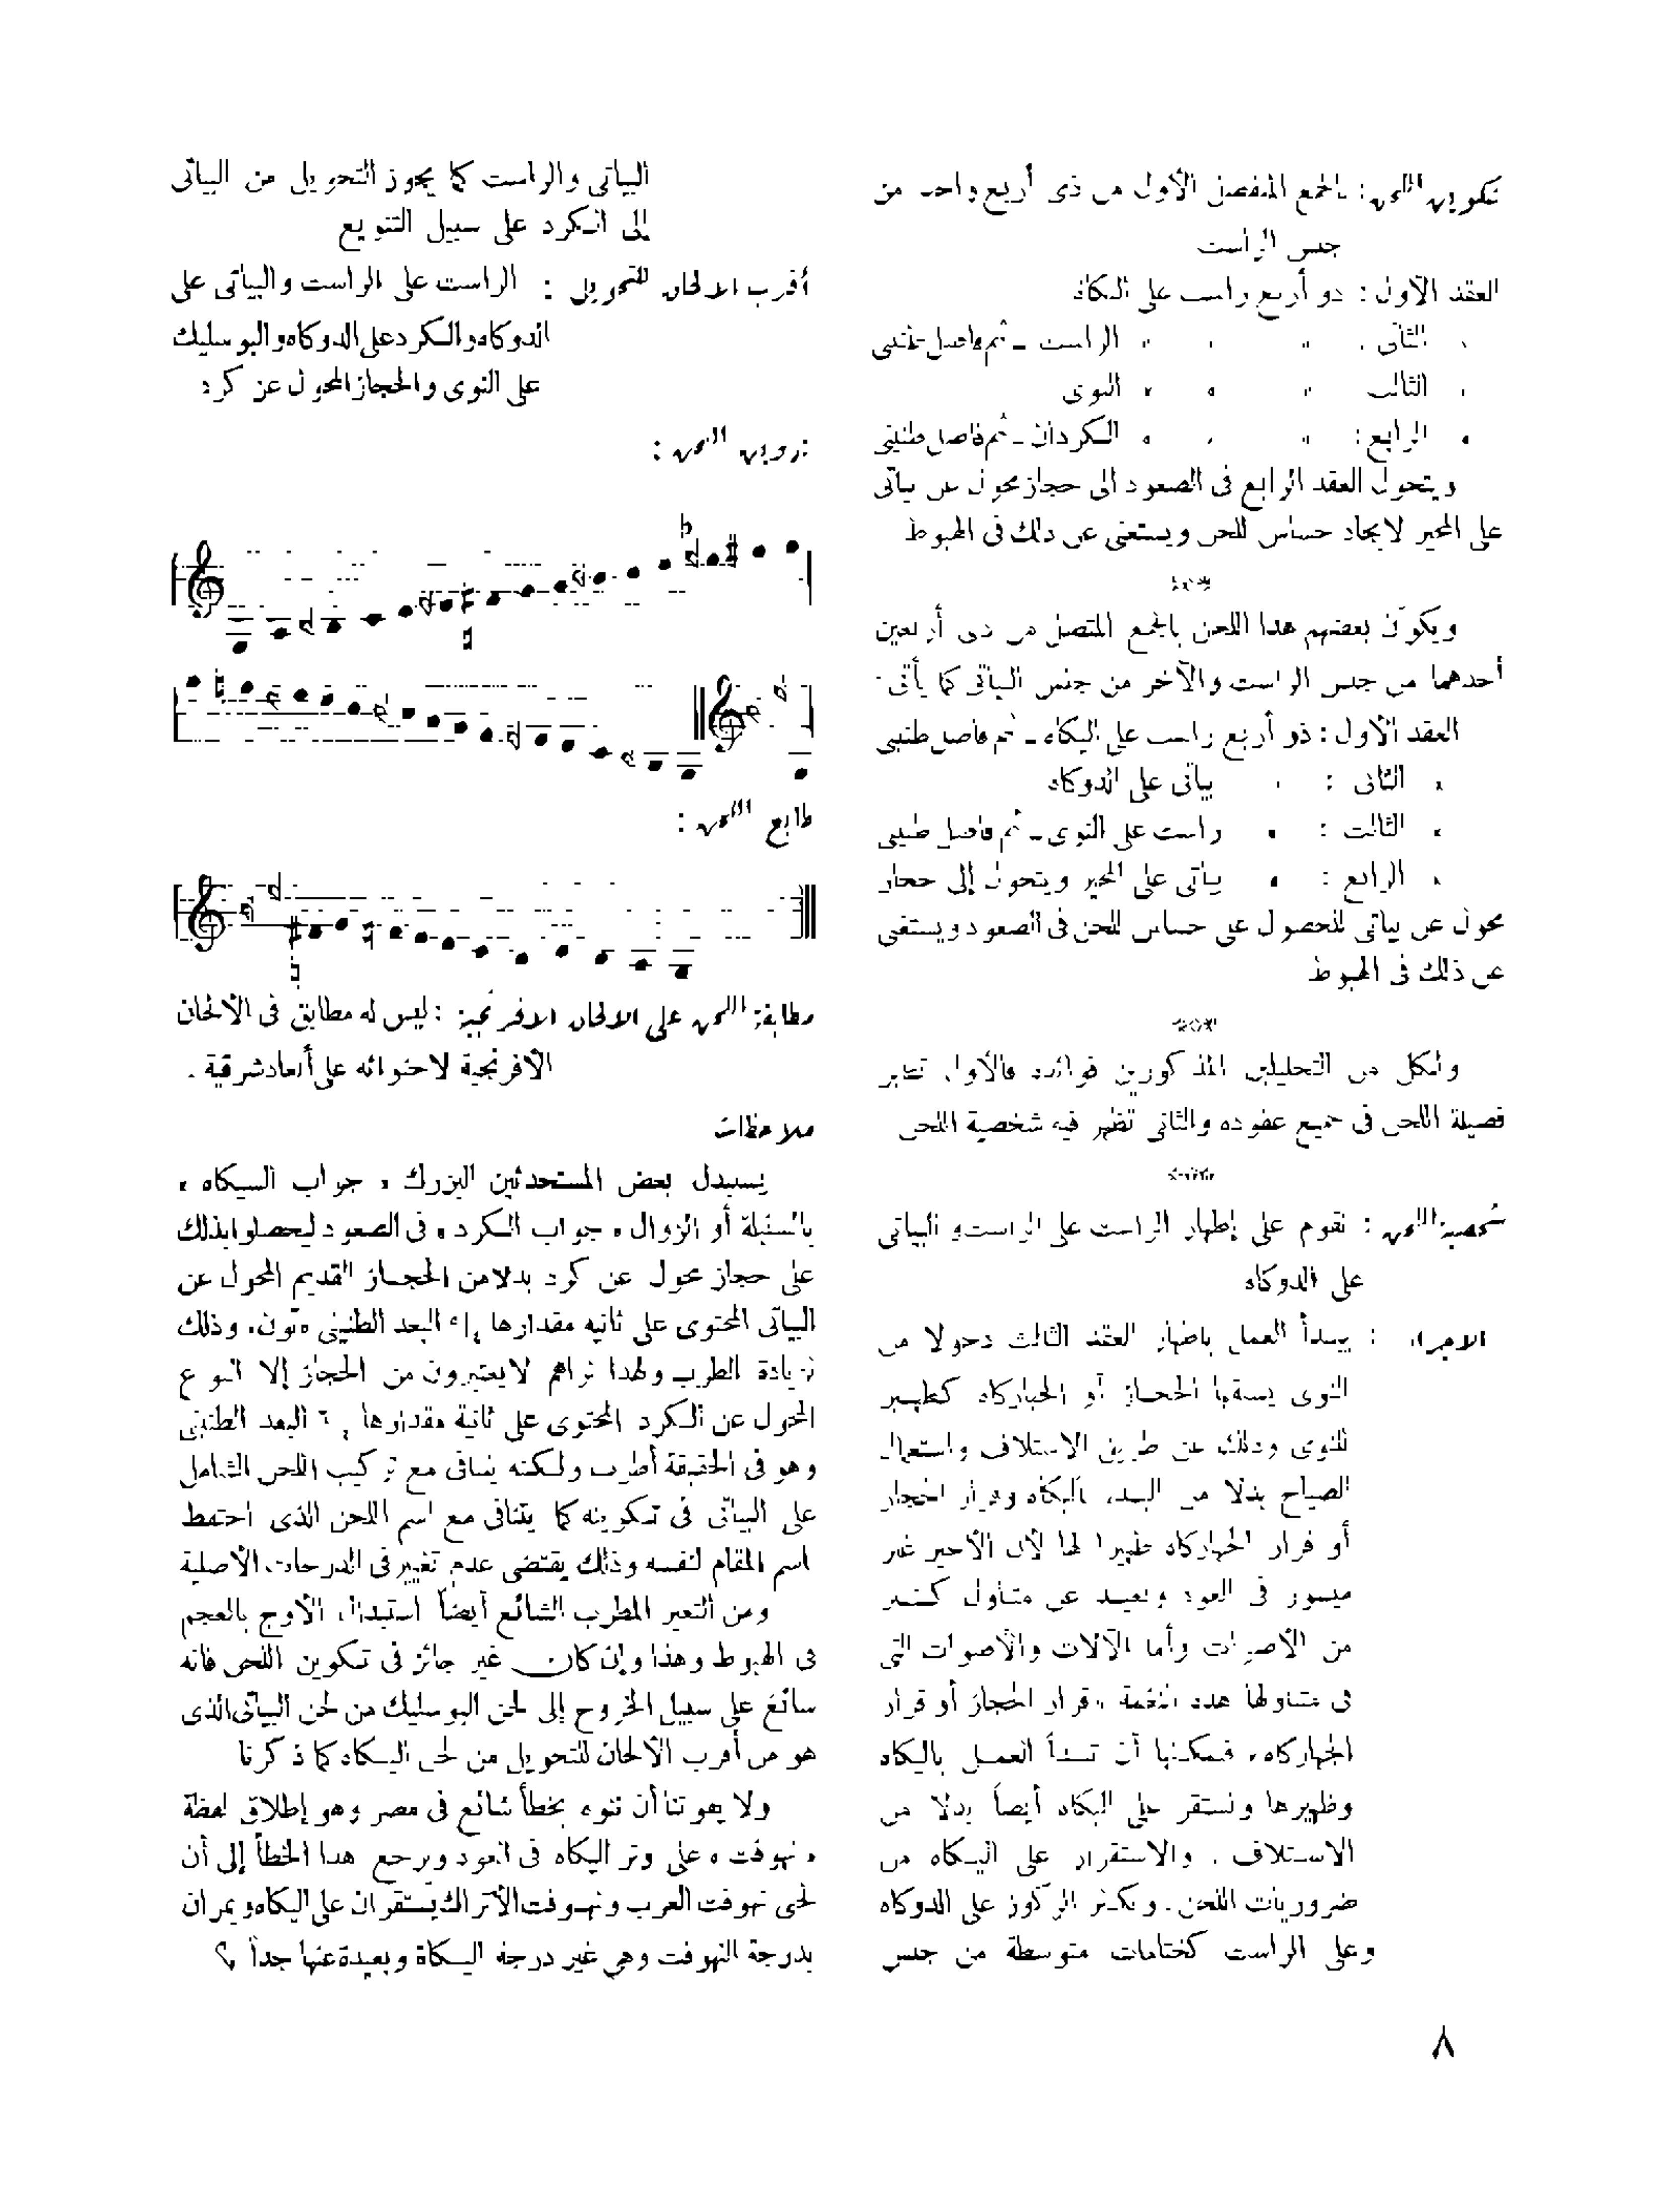 تكوين اللحن: بالجمع المنفصل الأول من ذى أربع واحد من
جنس الراست
العقد الأول: ذو أربع راست على اليكاه
» الثانى : » » » الراست ـ ثم فاصل طنينى
» الثالث » » » النوى
» الرابع: » » » الكردان ـ ثم فاصل طنينى
ويتحول العقد الرابع فى الصعود الى حجاز محول عن بياتى
على المحير لايجاد حساس للحن ويستغنى عن ذلك فى الهبوط
***
ويكوّن بعضهم هذا اللحن بالجمع المتصل من ذى أربعين
أحدهما من جنس الراست والآخر من جنس البياتى كما يأتى:
العقد الأول: ذو أربع راست على اليكاه ـ ثم فاصل طنينى
» الثانى : » بياتى على الدوكاه
» الثالث : » راست على النوى ـ ثم فاصل طنينى
» الرابع : » بياتى على المحير ويتحول إلى حجاز
محول عن بياتى للحصول على حساس للحن فى الصعود ويستغنى
عن ذلك فى الهبوط
***
ولكل من التحليلين المذكورين فوائده فالأول تعتبر
فصيلة اللحن فى جميع عقوده والثانى تظهر فيه شخصية اللحن
***
شخصية اللحن : تقوم على إظهار الراست على الراست والبياتى
على الدوكاه
الاجراء : يبدأ العمل باظهار العقد الثالث دخولا من
النوى يسبقها الحجاز أو الجهاركاه كظهير
للنوى وذلك عن طريق الاستلاف واستعمال
الصياح بدلا من البدء باليكاه وقرار الحجاز
أو قرار الجهاركاه ظهيرا لها لأن الأخير غير
ميسور فى العود وبعيد عن متناول كثير
من الأصوات وأما الآلات والأصوات التى
فى متناولها هذه النغمة » قرار الحجاز أو قرار
الجهاركاه» فيمكنها أن تبدأ العمل باليكاه
وظهيرها وتستقر على اليكاه أيضاً بدلا من
الاستلاف . والاستقرار على اليكاه من
ضروريات اللحن. ويكثر الركوز على الدوكاه
وعلى الراست كختامات متوسطة من جنس
البياتى والراست كما يجوز التحويل من البياتى
إلى الكرد على سبيل التنويع
أقرب الالحان للتحويل : الراست على الراست والبياتى على
الدوكاه والكرد على الدوكاه والبوسليك
على النوى والحجاز المحول عن كرد
تدوين اللحن :
طابع اللحن :
مطابقة اللحن على الالحان الافرنجية : ليس له مطابق فى الألحان
الافرنجية لاحتوائه على أبعاد شرقية .
ملاحظات
يستبدل بعض المستحدثين البزرك » جواب السيكاه »
بالسنبلة أو الزوال » جواب الكرد » فى الصعود ليحصلوا بذلك
على حجاز محول عن كرد بدلا من الحجاز القديم المحول عن
البياتى المحتوى على ثانيه مقدارها البعد الطنينى «تون» وذلك
لزيادة الطرب ولهذا تراهم لا يعتبرون من الحجاز إلا النوع
المحول عن الكرد المحتوى على ثانية مقدارها البعد الطنينى
وهو فى الحقيقة أطرب ولكنه يتنافى مع تركيب اللحن الشامل
على البياتى فى تكوينه كما يتنافى مع اسم اللحن الذى احتفظ
اسم المقام لنفسه وذلك يقتضى عدم تغيير فى الدرجات الأصلية
ومن التغير المطرب الشائع أيضاً استبدال الأوج بالعجم
فى الهبوط وهذا وإن كان غير جائز فى تكوين اللحن فانه
سائغ على سبيل الخروج إلى لحن البوسليك من لحن البياتى الذى
هو من أقرب الألحان للتحويل من لحن اليكاه كما ذكرنا
ولا يفوتنا أن ننوه بخطأ شائع فى مصر وهو إطلاق لفظة
» نهوفت » على وتر اليكاه فى العود ويرجع هذا الخطأ إلى أن
لحنى نهوفت العرب ونهوفت الأتراك يستقران على اليكاه ويمران
بدرجة النهوفت وهى غير درجة اليكاة وبعيدة عنها جداً ؟
٨